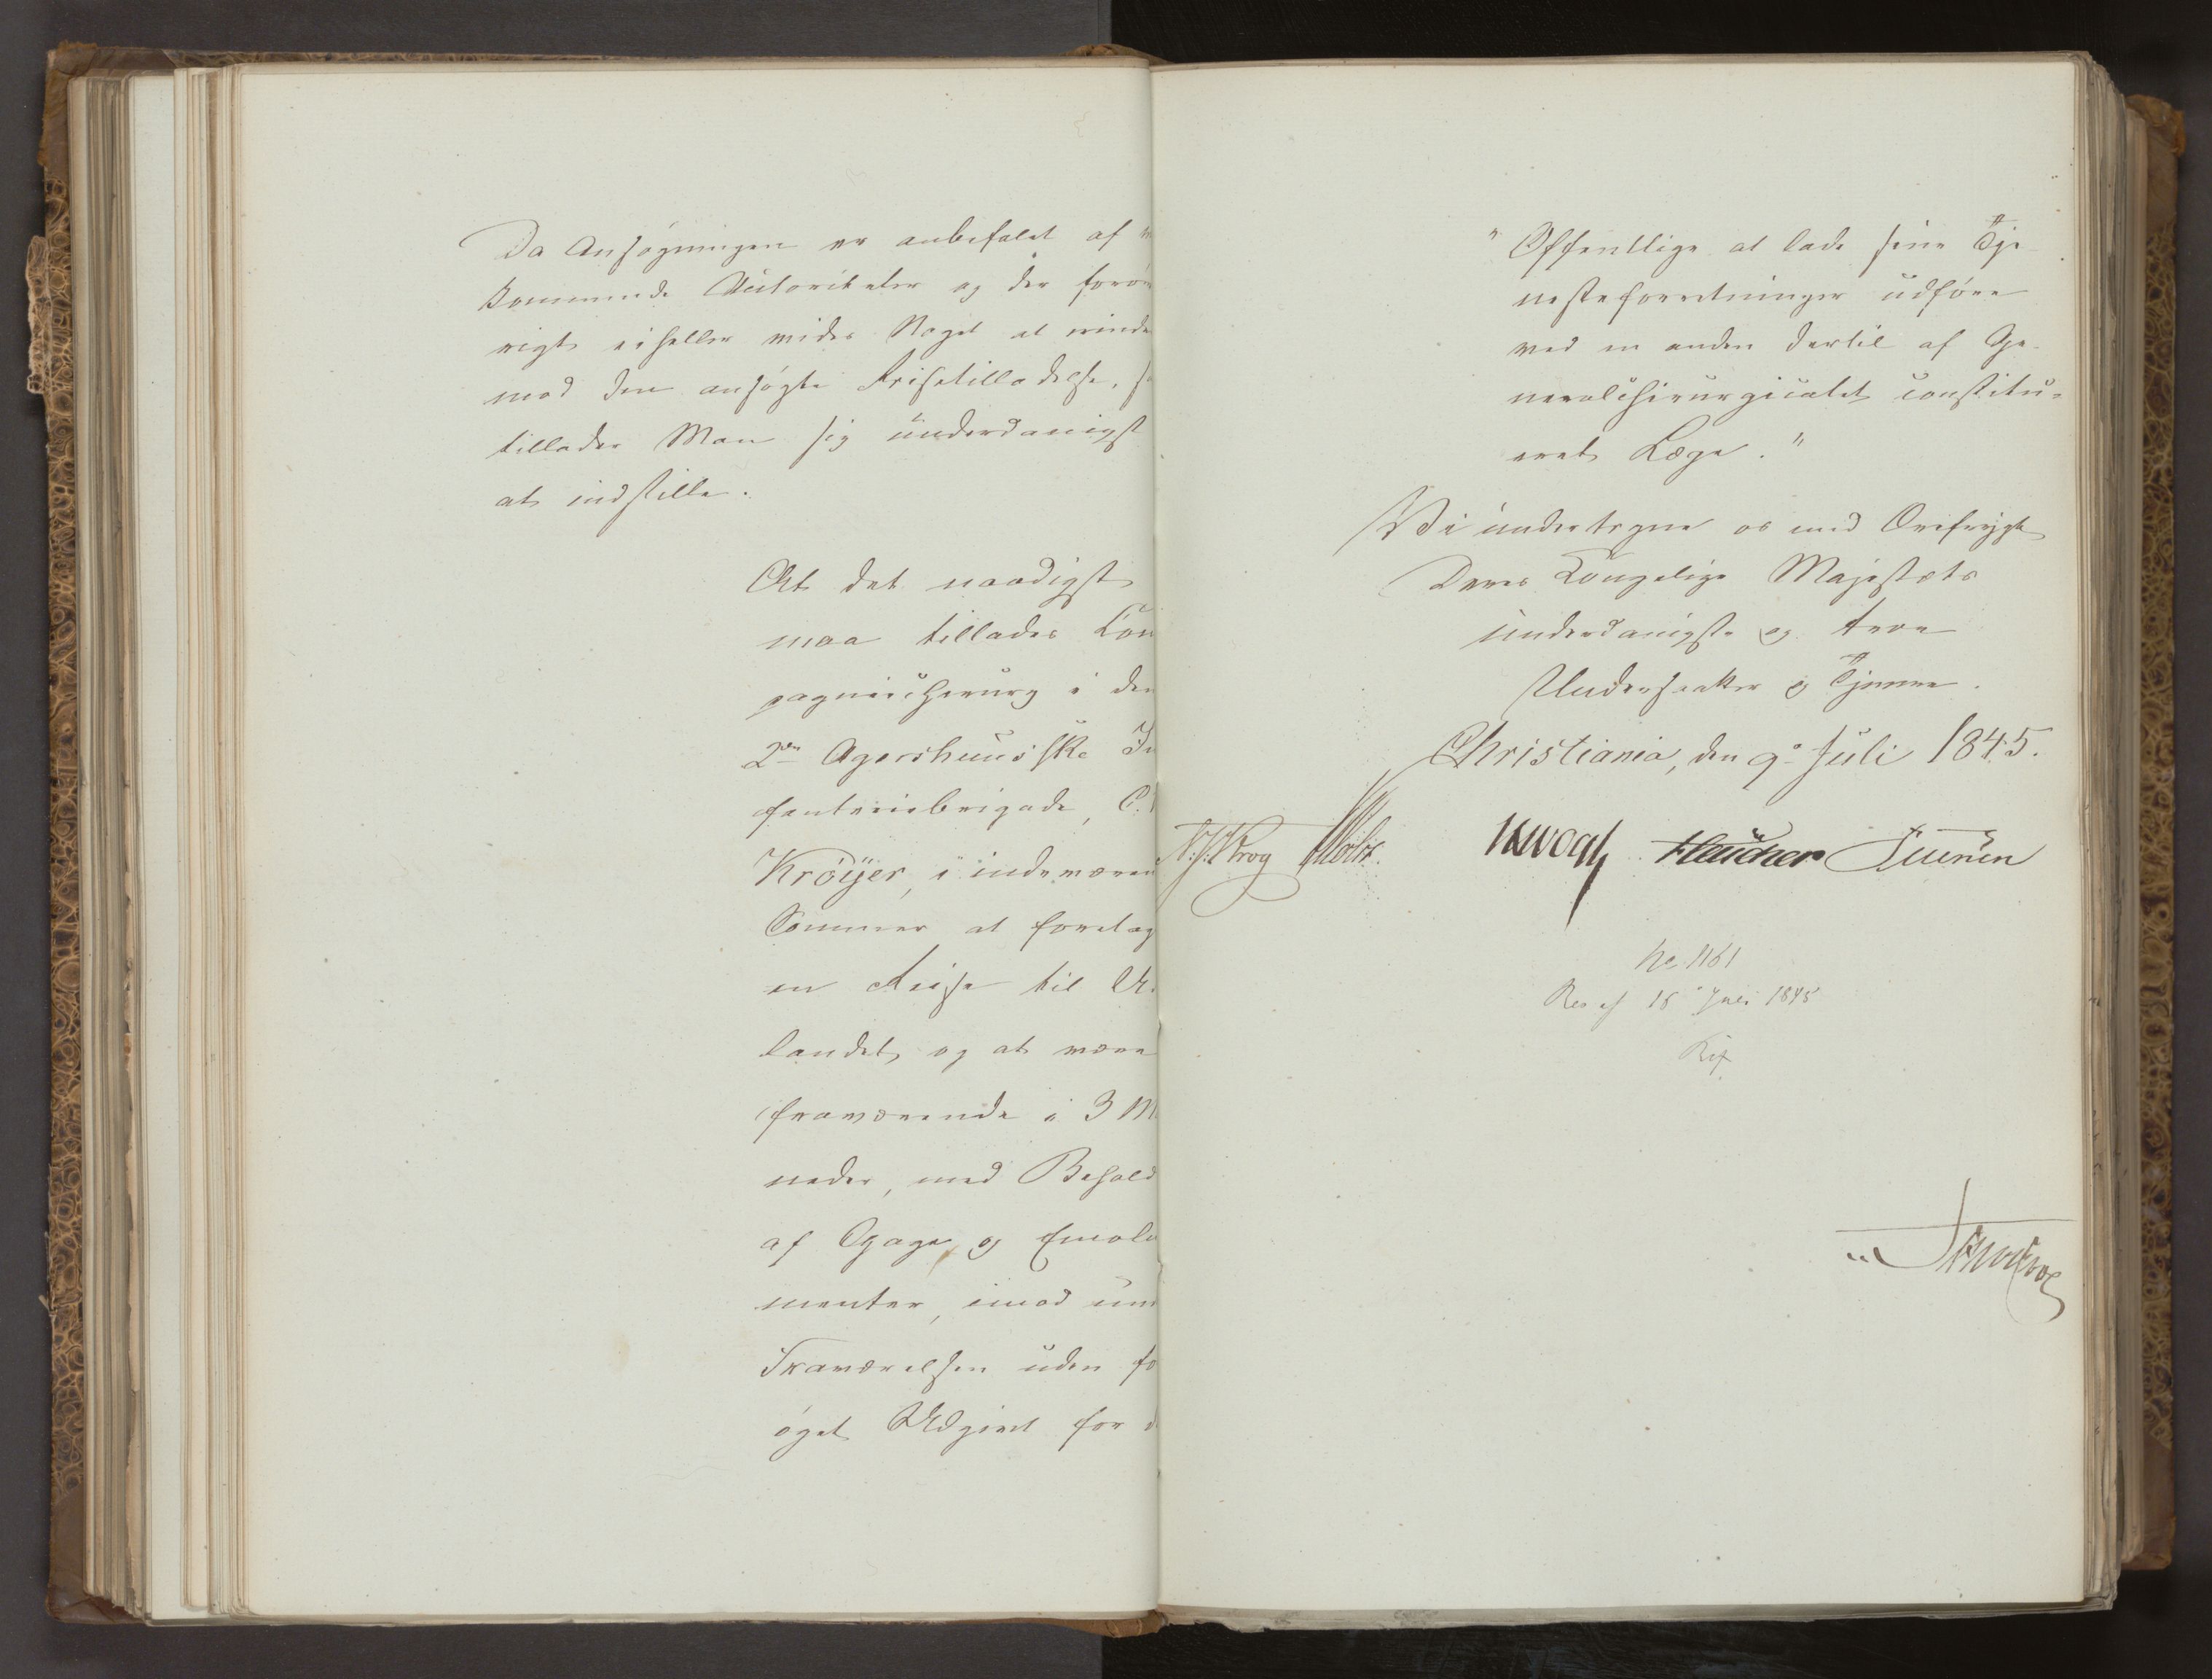 Da Ansøgningen er anbefalet af
kommende Autoriteter og der forøv
rigt ei heller vides Noget at erindr
mod den ansøgte Reisetilladelse, s
tillader Man sig underdanigst
at indstille.
At det naadigst
maa tillades Com
pagniechirurg i den
2den Agershuusiske In
fanteriebrigade, C.
Krøÿer, i indeværen
Sommer at foretag
en Reise til U
landet, og at være
fraværende i 3 M
neder, med Behold
af Gage og Emolu
menter, imod un
Fraværelsen uden fo
øget Udgivt for d
" Offentlige at lade sine Tje
nesteforretninger udføre
ved en anden dertil af Ge-
neralchirurgicatet constitu-
eret Læge."
Vi undertegne os med Ærefrygt
Deres Kongelige Majestæts
underdanigste og troe
Undersaatter og Tjenere.
Christiania, den 9de Juli 1845.
N.J. Krog Vogt Fleischer
No 1161
Res af 15 Juli 1845